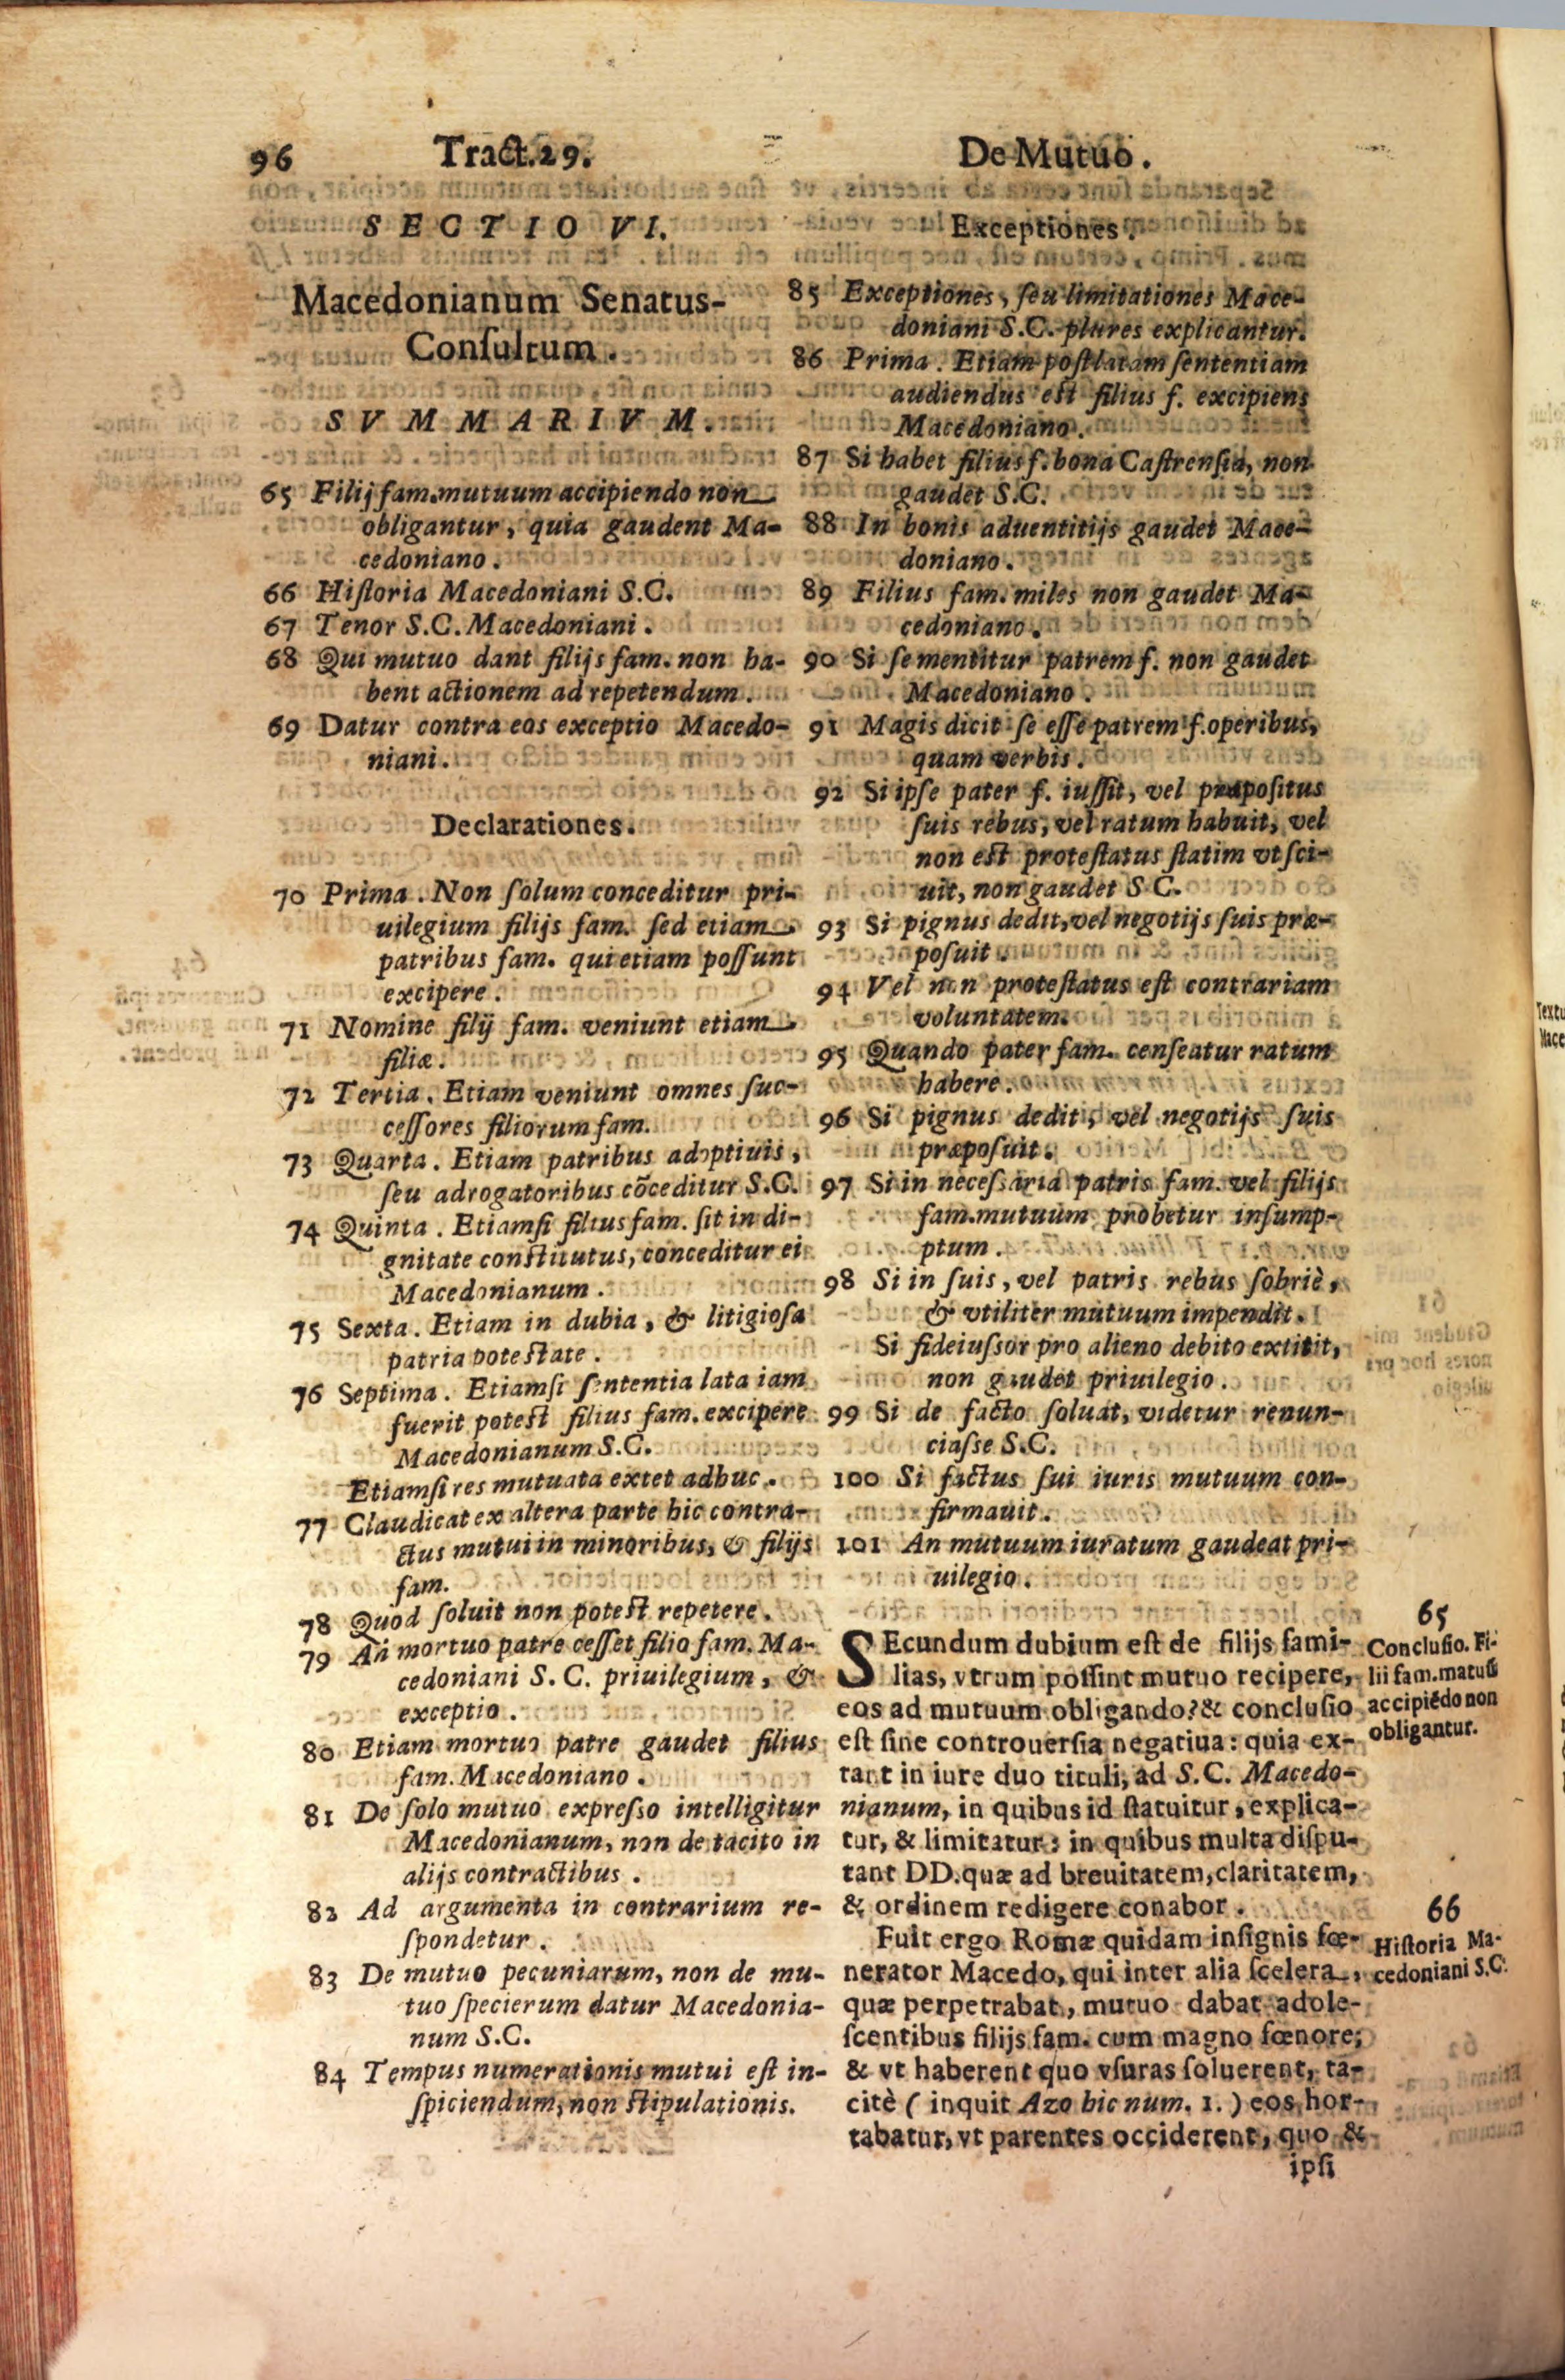 96 Tract.29. De Mutuo.
SECTIO VI.
Macedonianum Senatus-
Conſultum.
SVMMARIVM.
65 Filij fam. mutuum accipiendo non
obligantur, quia gaudent Ma-
cedoniano.
66 Hiſtoria Macedoniani S.C.
67 Tenor S.C. Macedoniani.
68 Qui mutuo dant filijs fam. non ha-
bent actionem ad repetendum.
69 Datur contra eos exceptio Macedo-
niani.
Declarationes.
70 Prima. Non ſolum conceditur pri-
uilegium filijs fam. ſed etiam
patribus fam. qui etiam poſſunt
excipere.
71 Nomine filij fam. veniunt etiam
filiæ.
72 Tertia. Etiam veniunt omnes ſuc-
ceſſores filiorum fam.
73 Quarta. Etiam patribus adoptiuis,
ſeu adrogatoribus cõceditur S.C.
74 Quinta. Etiamſi filius fam. ſit in di-
gnitate conſtitutus, conceditur ei
Macedonianum.
75 Sexta. Etiam in dubia, & litigioſa
patria poteſtate.
76 Septima. Etiamſi ſententia lata iam
fuerit poteſt filius fam. excipere
Macedonianum S.C.
Etiamſi res mutuata extet adhuc.
77 Claudicat ex altera parte hic contra-
ctus mutui in minoribus, & filijs
fam.
78 Quod ſoluit non poteſt repetere.
79 An mortuo patre ceſſet filio fam. Ma-
cedoniani S.C. priuilegium, &
exceptio.
80 Etiam mortuo patre gaudet filius
fam. Macedoniano.
81 De ſolo mutuo expreſſo intelligitur
Macedonianum, non de tacito in
alijs contractibus.
82 Ad argumenta in contrarium re-
ſpondetur.
83 De mutuo pecuniarum, non de mu-
tuo ſpecierum datur Macedonia-
num S.C.
84 Tempus numerationis mutui eſt in-
ſpiciendum, non ſtipulationis.
Exceptiones.
85 Exceptiones, ſeu limitationes Mace-
doniani S.C. plures explicantur.
86 Prima. Etiam poſt latam ſententiam
audiendus eſt filius f. excipiens
Macedoniano.
87 Si habet filius f. bona Caſtrenſia, non
gaudet S.C.
88 In bonis aduentitijs gaudet Mace-
doniano.
89 Filius fam. miles non gaudet Ma-
cedoniano.
90 Si ſe mentitur patrem f. non gaudet
Macedoniano.
91 Magis dicit ſe eſſe patrem f. operibus,
quam verbis.
92 Si ipſe pater f. iuſſit, vel præpoſitus
ſuis rebus, vel ratum habuit, vel
non eſt proteſtatus ſtatim vt ſci-
uit, non gaudet S C.
93 Si pignus dedit, vel negotijs ſuis præ-
poſuit.
94 Vel non proteſtatus eſt contrariam
voluntatem.
95 Quando pater fam. cenſeatur ratum
habere.
96 Si pignus dedit, vel negotijs ſuis
præpoſuit.
97 Si in neceſſaria patris fam. vel filijs
fam. mutuum probetur inſump-
ptum.
98 Si in ſuis, vel patris rebus ſobriè,
& vtiliter mutuum impendit.
Si fideiuſſor pro alieno debito extitit,
non gaudet priuilegio.
99 Si de facto ſoluat, videtur renun-
ciaſſe S.C.
100 Si factus ſui iuris mutuum con-
firmauit.
101 An mutuum iuratum gaudeat pri-
uilegio.
SEcundum dubium eſt de filijs fami-
lias, vtrum poſſint mutuo recipere,
eos ad mutuum obligando? & concluſio
eſt ſine controuerſia negatiua: quia ex-
tant in iure duo tituli, ad S.C. Macedo-
nianum, in quibus id ſtatuitur, explica-
tur, & limitatur: in quibus multa diſpu-
tant DD. quæ ad breuitatem, claritatem,
& ordinem redigere conabor.
Fuit ergo Romæ quidam inſignis fœ-
nerator Macedo, qui inter alia ſcelera,
quæ perpetrabat, mutuo dabat adole-
ſcentibus filijs fam. cum magno fœnore;
& vt haberent quo vſuras ſoluerent, ta-
citè (inquit Azo hic num. 1.) eos hor-
tabatur, vt parentes occiderent, quo &
ipſi
65
Concluſio. Fi-
lii fam. mutuũ
accipiẽdo non
obligantur.
66
Hiſtoria Ma-
cedoniani S.C.